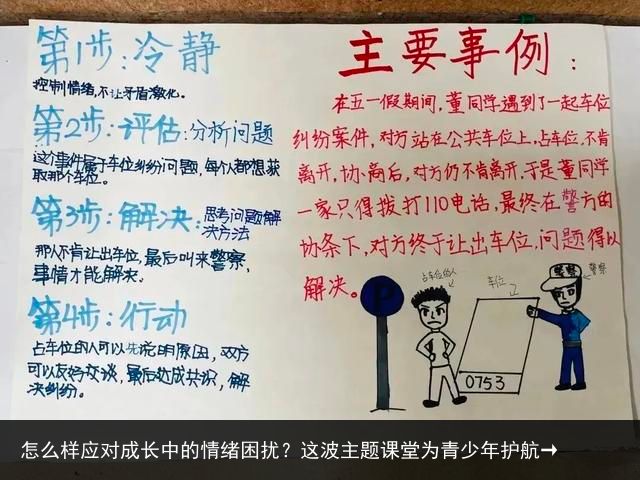 第1步:冷静
控制情绪,不让矛盾激化。
第2步:评估:分析问题
这个事件属于车位纠纷问题,每个人都想获
取那个车位。
第3步:解决:思考问题解
决方法
那人不肯让出车位,最后叫来警察,
事情才能解决。
第4步:行动
占车位的人可以先说明原因,双方
可以友好交谈,最后达成共识,解
决纠纷。
主要事例:
在五一假期间,董同学遇到了一起车位
纠纷案件,对方站在公共车位上,占车位,不肯
离开,协商后,对方仍不肯离开,于是董同学
一家只得拨打110电话,最终在警方的
协条下,对方终于让出车位,问题得以
解决。
占车位的人
车位
警察
警察
P
0753
怎么样应对成长中的情绪困扰?这波主题课堂为青少年护航→